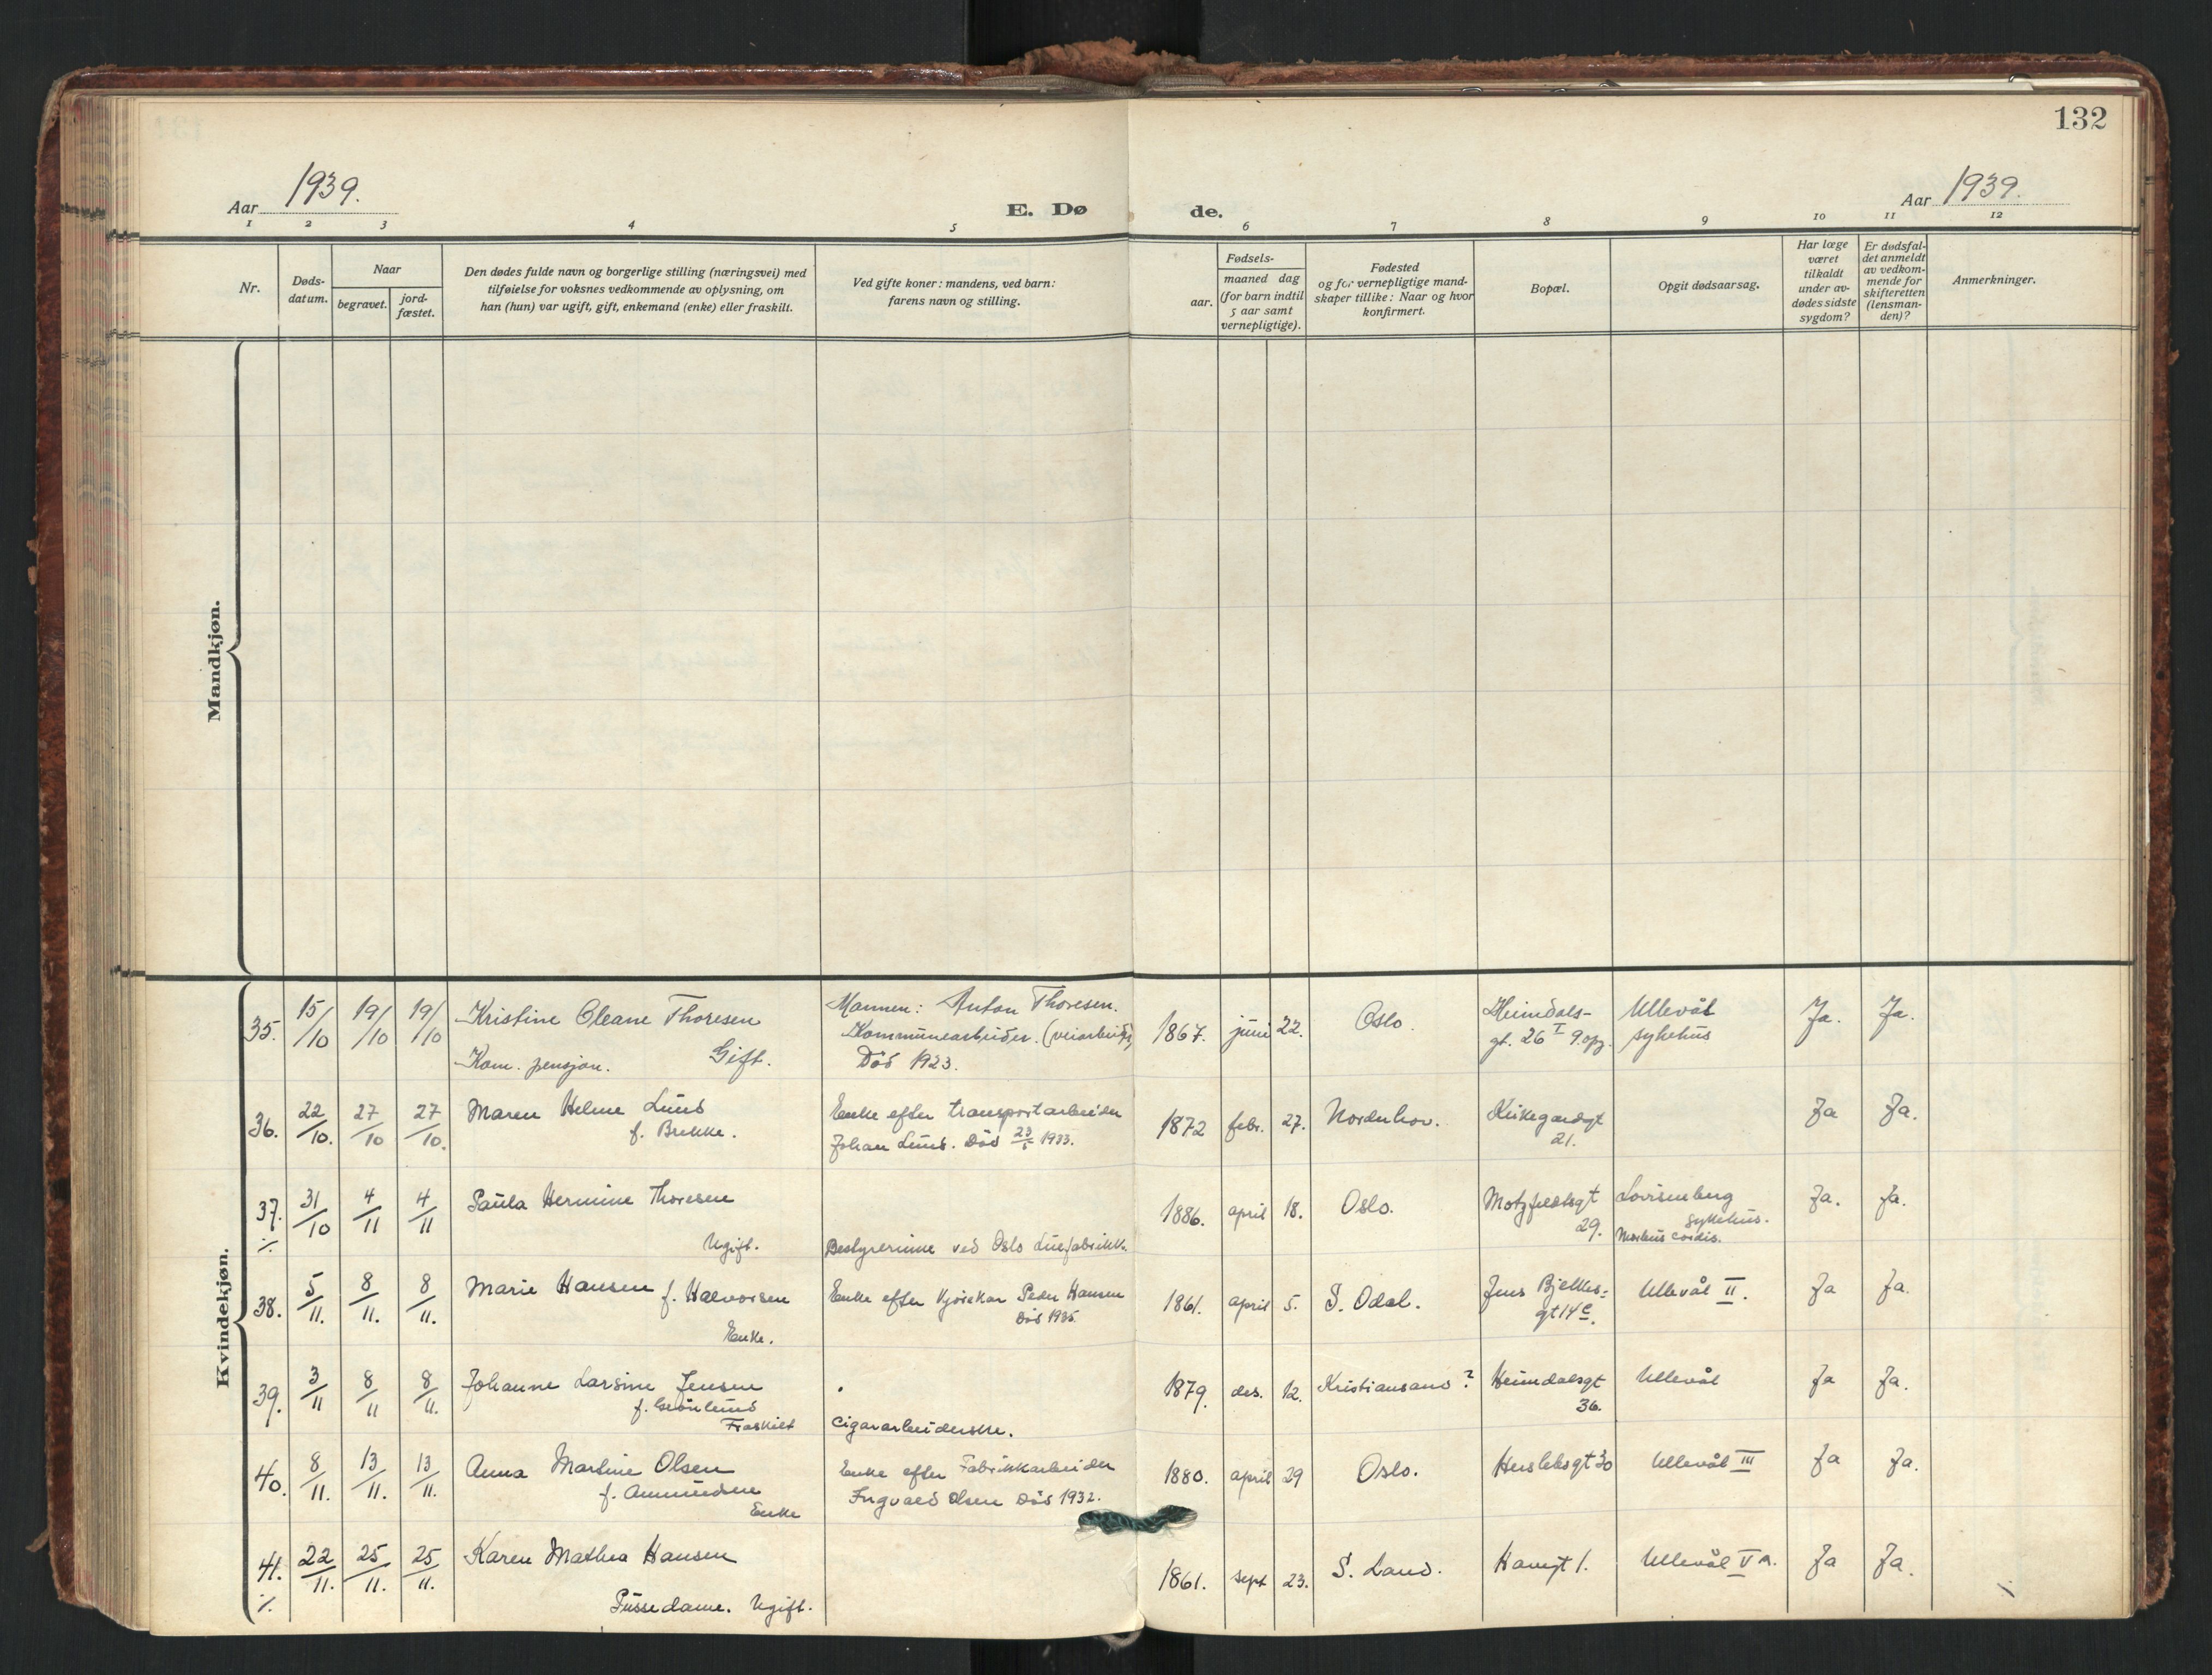 132
Aar 1939.
E. Dø
de.
Aar 1939.
1 2 3 4 5 6 7 8 9 10 11 12
Nr.
Døds-
datum.
Naar
begravet.
jord-
fæstet.
Den dødes fulde navn og borgerlige stilling (næringsvei) med
tilføielse for voksnes vedkommende av oplysning, om
han (hun) var ugift, gift, enkemand (enke) eller fraskilt.
Ved gifte koner: mandens, ved barn:
farens navn og stilling.
Fødsels-
aar.
maaned dag
(for barn indtil
5 aar samt
vernepligtige).
Fødested
og for vernepligtige mand-
skaper tillike: Naar og hvor
konfirmert.
Bopæl.
Opgit dødsaarsag.
Har læge
været
tilkaldt
under av-
dødes sidste
sygdom?
Er dødsfal-
det anmeldt
av vedkom-
mende for
skifteretten
(lensman-
den)?
Anmerkninger.
Mandkjøn.
Kvindekjøn.
35. 15/10 19/10 19/10 Kristine Oleane Thoresen
Kom. pensjon. Gift.
Mannen: Anton Thoresen.
Kommunearbeider. (veiarbeider)
Død 1923.
1867. juni 22. Oslo.
Heimdals-
gt. 26 I 9 opg.
Ullevål
sykehus
Ja. Ja.
36. 22/10. 27/10 27/10. Maren Helene Lund
f. Brekke.
Enke efter transportarbeider
Johan Lund. Død 23/5 1933.
1872 febr. 27. Norderhov.
Kirkegardsgt
21.
Ja Ja.
37. 31/10 4/11 4/11 Paula Hermine Thoresen
·/· Ugift.
Bestyrerinne ved Oslo Luefabrikk.
1886. april 18. Oslo.
Motzfeldtsgt
29.
Lovisenberg
sykehus.
Morbus cordis.
Ja. Ja.
38. 5/11. 8/11. 8/11. Marie Hansen f. Halvorsen
Enke.
Enke efter kjørekar Peder Hansen
Død 1935.
1861. april 5. S. Odal.
Jens Bjelkes-
gt 14 c.
Ullevål II.
Ja Ja.
39. 3/11 8/11 8/11. Johanne Larsine Jensen
f. Grönlund
Fraskilt
Cigararbeiderske.
1879. des. 12. Kristiansand?
Heimdalsgt
36.
Ullevål
Ja Ja.
40. 8/11. 13/11. 13/11. Anna Martine Olsen
f. Amundsen
Enke
Enke efter Fabrikkarbeider
Ingvald Olsen Død 1932.
1880. april 29 Oslo.
Herslebsgt 30
Ullevål III
Ja Ja.
41. 22/11. 25/11. 25/11. Karen Mathea Hansen
·/· Pussedame. Ugift.
1861. sept 23. S. Land.
Havgt 1.
Ullevål V a.
Ja Ja.